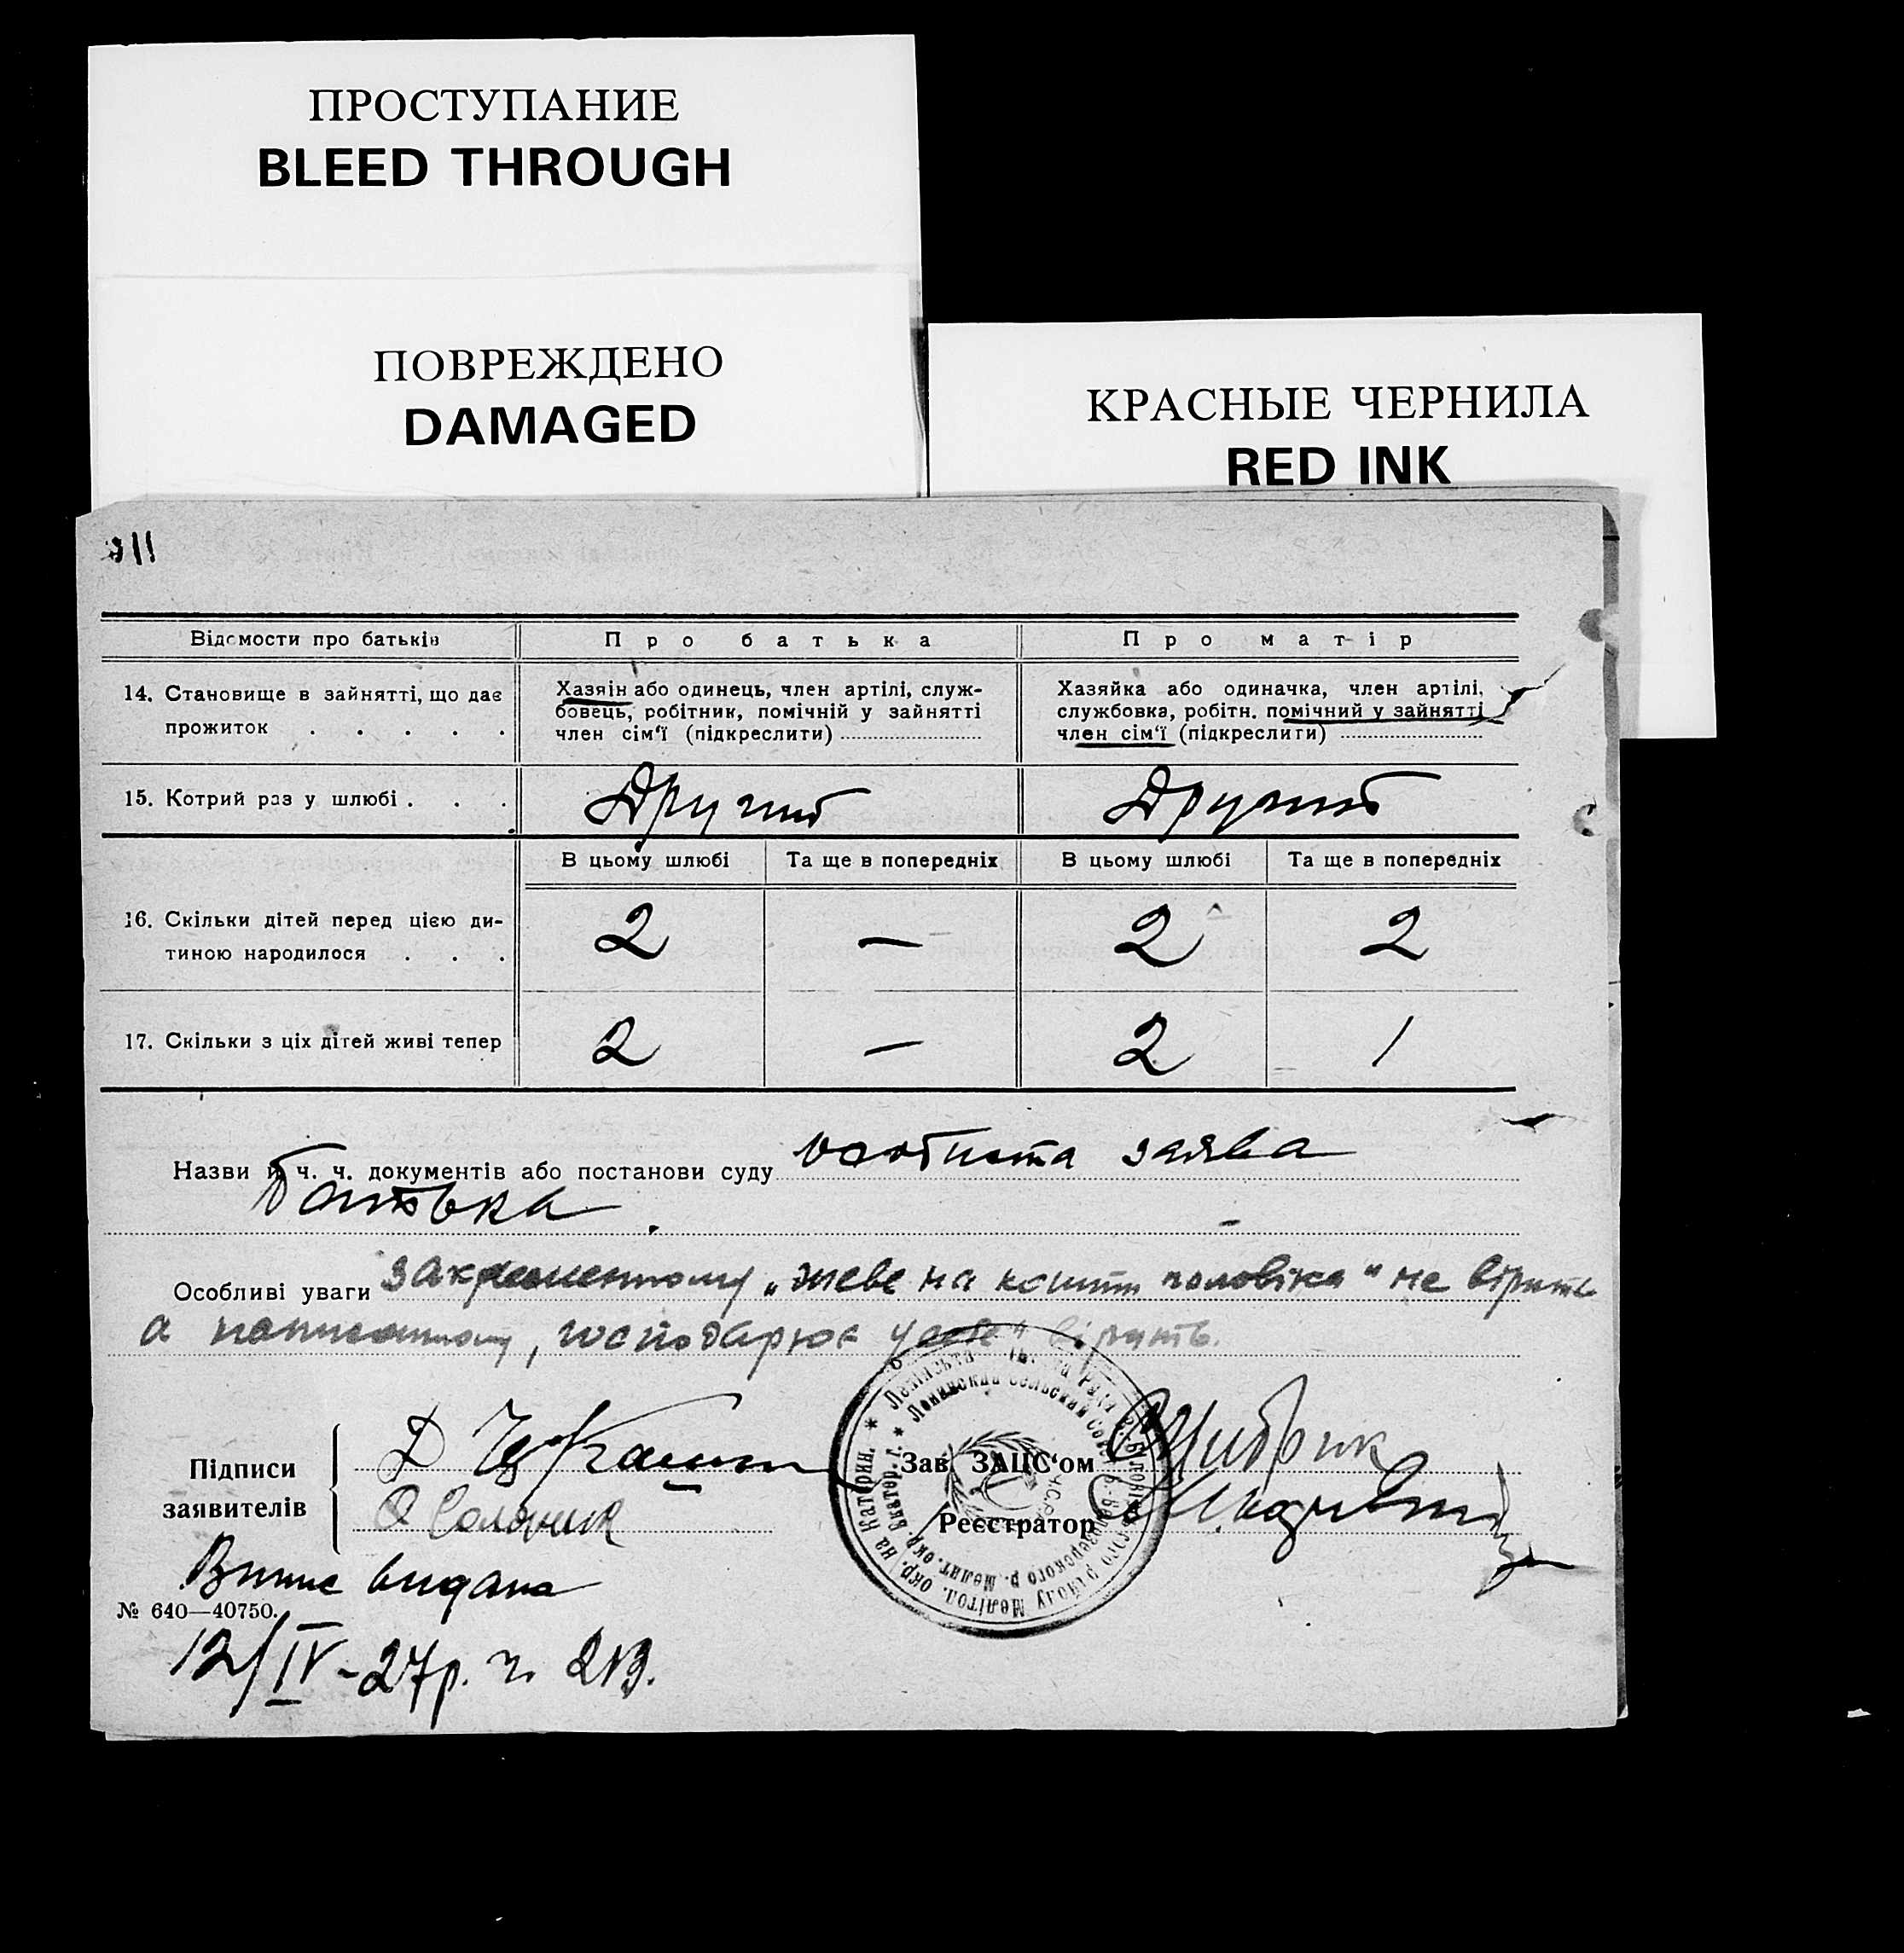 ПРОСТУПАНИЕ
BLEED THROUGH
ПОВРЕЖДЕНО
DAMAGED
КРАСНЫЕ ЧЕРНИЛА
RED INK
Відомости про батьків
Про батька
Про матір
14. Становище в зайнятті, що дає
прожиток . . . . .
Хазяін або одинець, член артілі, служ-
бовець, робітник, помічній у зайнятті
член сім'ї (підкреслити)
Хазяйка або одиначка, член артілі,
службовка, робітн. помічний у зайнятті
член сім'ї (підкреслити)
15. Котрий раз у шлюбі . . .
Другий
Другий
В цьому шлюбі
Та ще в попередніх
В цьому шлюбі
Та ще в попередніх
16. Скільки дітей перед цією ди-
тиною народилося . . .
2
—
2
2
17. Скільки з ціх дітей живі тепер
2
—
2
1
Назви й ч. ч. документів або постанови суду особиста заява
батька.
Особливі уваги закресленному „живе на кошти чоловіка" не вірить
а написанному, господарює у себе" вірить.
Підписи
заявителів
Зав. ЗАЦС'ом
Реєстратор
Випис видана
№ 640—40750.
12/IV-27р. ч. 213.